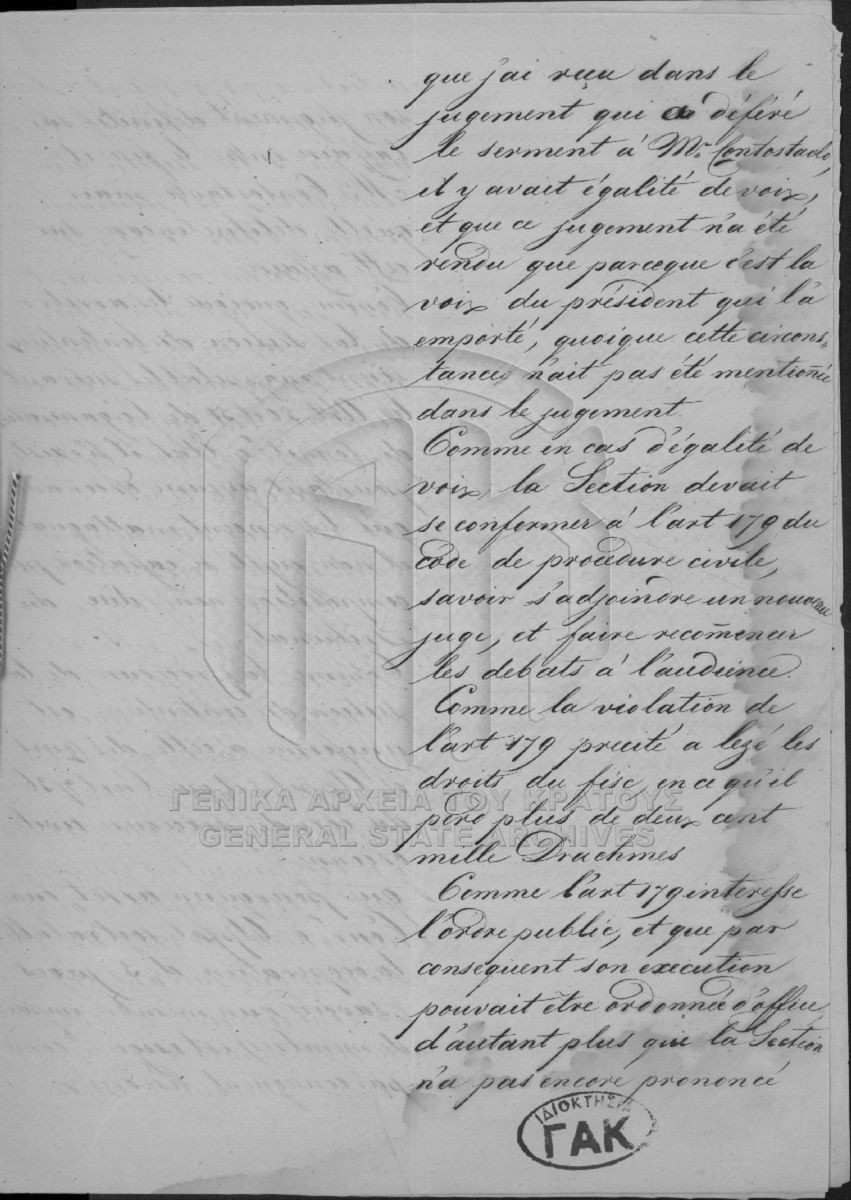 que j'ai reçu dans le
jugement qui a déféré
le serment à Mr. Contostavlo,
il y avait égalité de voix,
et que ce jugement n'a été
rendu que parceque c'est la
voix du président qui l'a
emporté, quoique cette circons=
tance n'ait pas été mentionée
dans le jugement.
Comme en cas d'égalité de
voix, la Section devait
se conformer à l'art 179 du
Code de procedure civile,
savoir s'adjoindre un nouveau
juge, et faire recomencer
les debats à l'audience.
Comme la violation de
l'art 179 precité a lezé les
droits du fisc, en ce qu'il
perd plus de deux cent
mille Drachmes
Comme l'art 179 interesse
l'ordre public, et que par
consequent son execution
pouvait être ordonnée d'office,
d'autant plus que la Section
n'a pas encore prononcé
ΓΕΝΙΚΑ ΑΡΧΕΙΑ ΤΟΥ ΚΡΑΤΟΥΣ
GENERAL STATE ARCHIVES
ΙΔΙΟΚΤΗΣΙΑ
ΓΑΚ